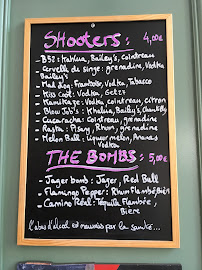 Shooters : 4,00€
- B52 : Kahlua, Bailey's, Cointreau
- Cervelle de singe : grenadine, Vodka,
Bailey's
- Mad Dog : Framboise, Vodka, Tabasco
- Kiss Cool : Vodka, Get27
- Kamikaze : Vodka, cointreau, citron
- Blow Job's : Khalua, Bailey's, Chantilly
- Cucaracha : Cointreau, grenadine
- Rasta : Pisang, Rhum, grenadine
- Melon Ball : Liqueur melon, Ananas
Vodka
THE BOMBS : 5,00€
- Jager bomb : Jager, Red Bull
- Flamingo Pepper : Rhum Flambé, Bière
- Camino Réal : Tequila Flambée,
Bière
L'abus d'alcool est mauvais par la santé...